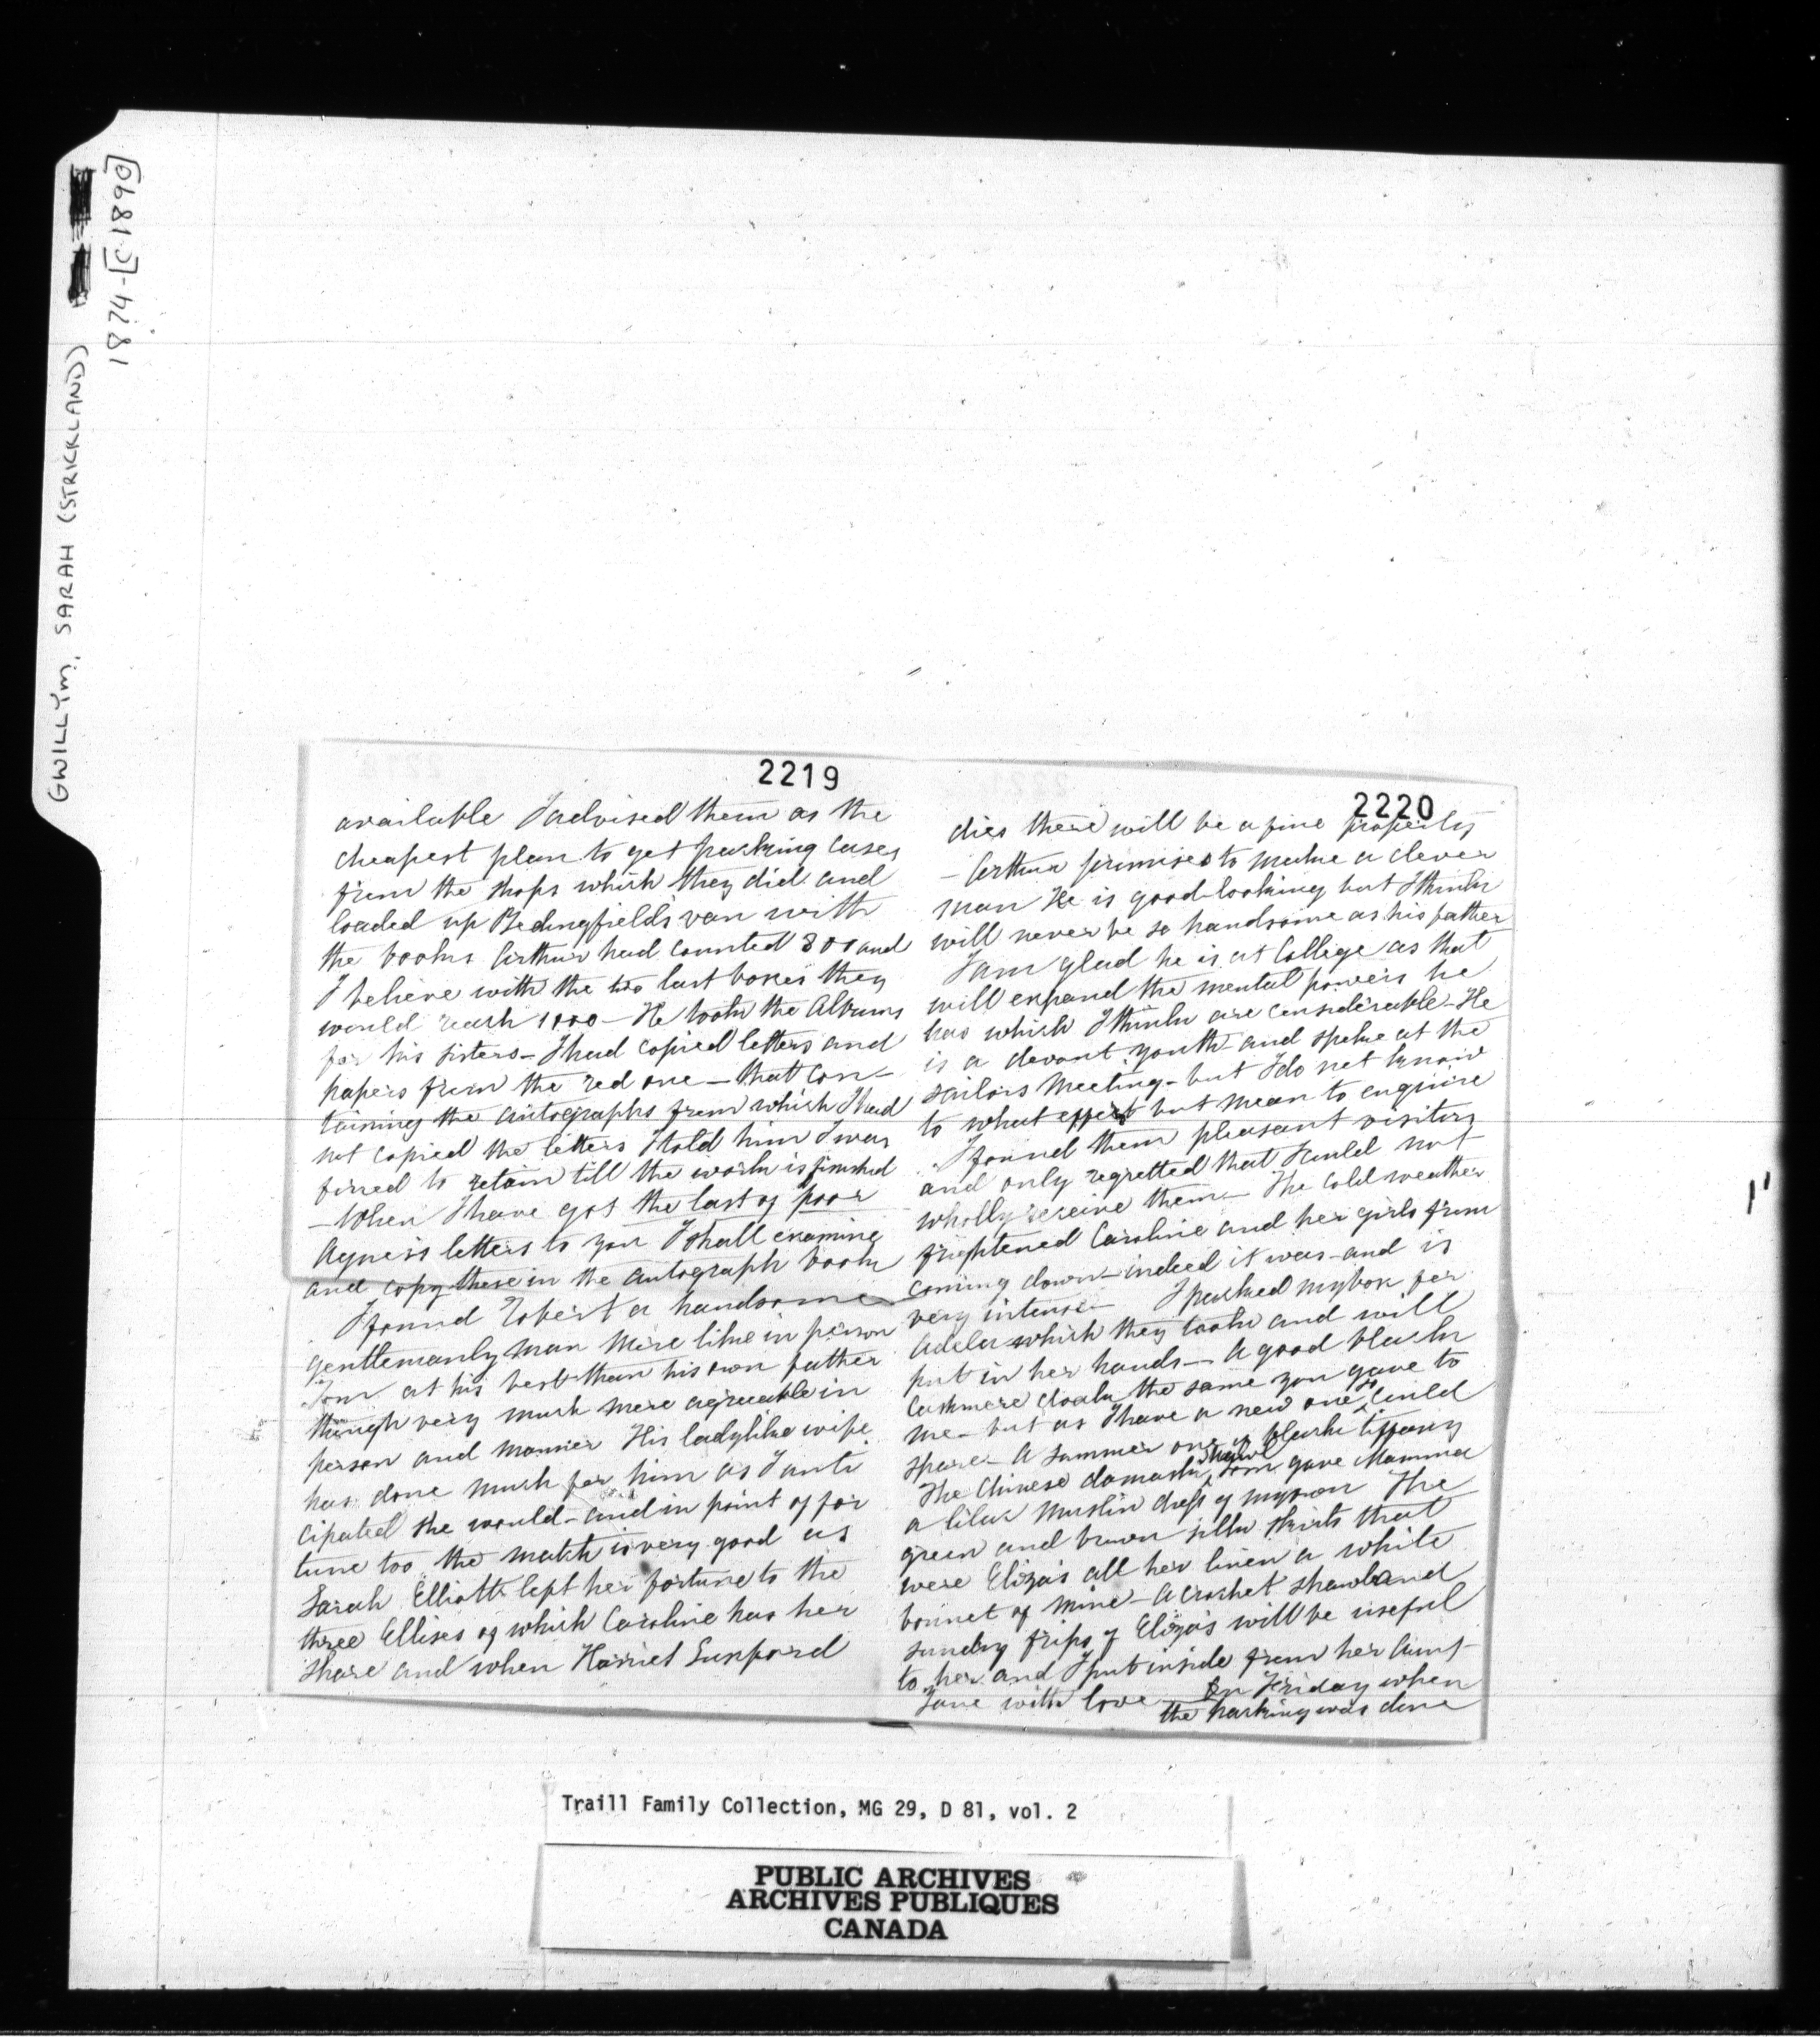 GWILLYM, SARAH (STRICKLAND)
1874-[C.1890]
2219
available I advised them as the
cheapest plan to get packing cases
from the shops which they did and
loaded up Bedingfield's van with
the books Arthur had counted 800 and
I believe with the two last boxes they
would reach 1000 - He took the Albums
for his sisters - I had copied letters and
papers from the red one - that con-
taining the autographs from which I had
not copied the letters I told him I was
forced to retain till the work is finished
- When I have got the last of poor
Agnes's letters to you I shall examine
and copy these in the autograph book
I found Robert a handsome
gentlemanly man more like in person
Tom at his best than his own father
though very much more agreeable in
person and manner His ladylike wife
has done much for him as I anti
cipated she would - and in point of for
tune too the match is very good as
Sarah Elliott left her fortune to the
three Ellises of which Caroline has her
share and when Harriet
2220
dies there will be a fine property
- Arthur promises to make a clever
man He is good-looking but I think
will never be so handsome as his father
I am glad he is at College as that
will expand the mental powers he
has which I think are considerable - He
is a devout youth and spoke at the
sailors Meeting - but I do not know
to what effect but mean to enquire
I found them pleasant visitors
and only regretted that I could not
wholly receive them - The cold weather
frightened Caroline and her girls from
coming down - indeed it was - and is
very intense - I packed my box for
Adela which they took and will
put in her hands - A good black
Cashmere cloak the same you gave to
me - but as I have a new one so could
spare - A summer one of black tiffany
The Chinese damask shawl Tom gave Mamma
a lilac muslin dress of my own The
green and brown silk skirts that
were Eliza's all her linen a white
bonnet of mine - A crochet shawl and
sundry frips of Eliza's will be useful
to her and I put inside from her Aunt
Jane with love - On Friday when
the packing was done
Traill Family Collection, MG 29, D 81, vol. 2
PUBLIC ARCHIVES
ARCHIVES PUBLIQUES
CANADA